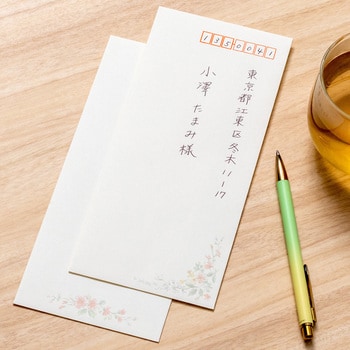 1350041
東京都江東区冬木11-17
小澤 たまみ様